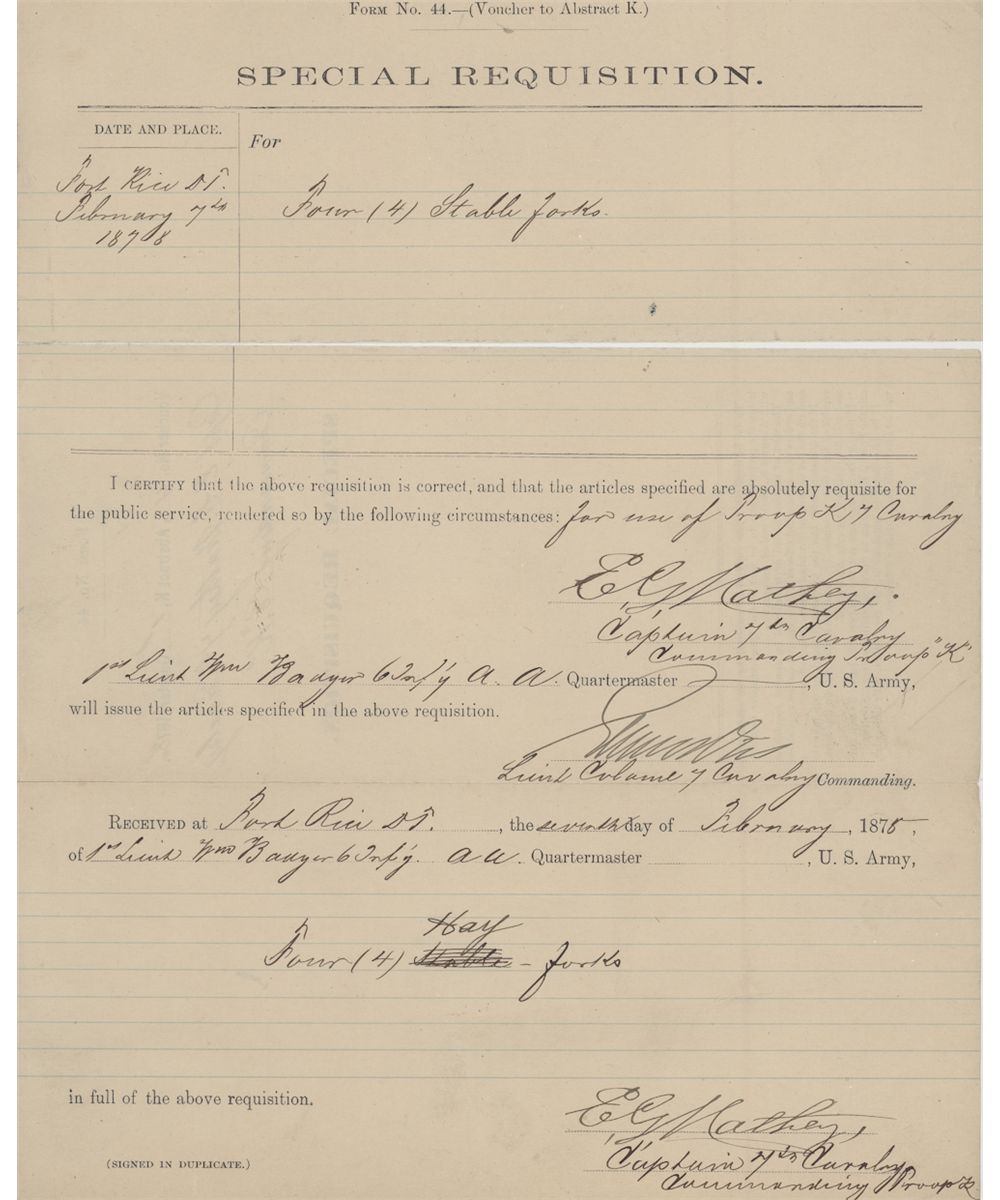 Form No. 44.—(Voucher to Abstract K.)
SPECIAL REQUISITION.
DATE AND PLACE.
For
Fort Rice D.T.
February 7th
1878
Four (4) Stable forks.
I certify that the above requisition is correct, and that the articles specified are absolutely requisite for
the public service, rendered so by the following circumstances: for use of Troop K 7 Cavalry
E. G. Mathey,
Captain 7th Cavalry
Commanding Troop "K"
1st Lieut Wm Badger 6 Inf'y A. A. Quartermaster , U. S. Army,
will issue the articles specified in the above requisition.
Lieut Colonel 7 Cavalry Commanding.
Received at Fort Rice D.T. , the seventh day of February , 1878 ,
of 1st Lieut Wm Badger 6 Inf'y. A A. Quartermaster , U. S. Army,
Hay
Four (4) Stable - forks
in full of the above requisition.
E. G. Mathey,
Captain 7th Cavalry
Commanding Troop K
(SIGNED IN DUPLICATE.)